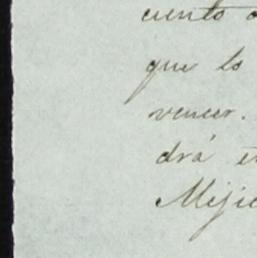 ciento
que lo
vencer.
drá
Méjic